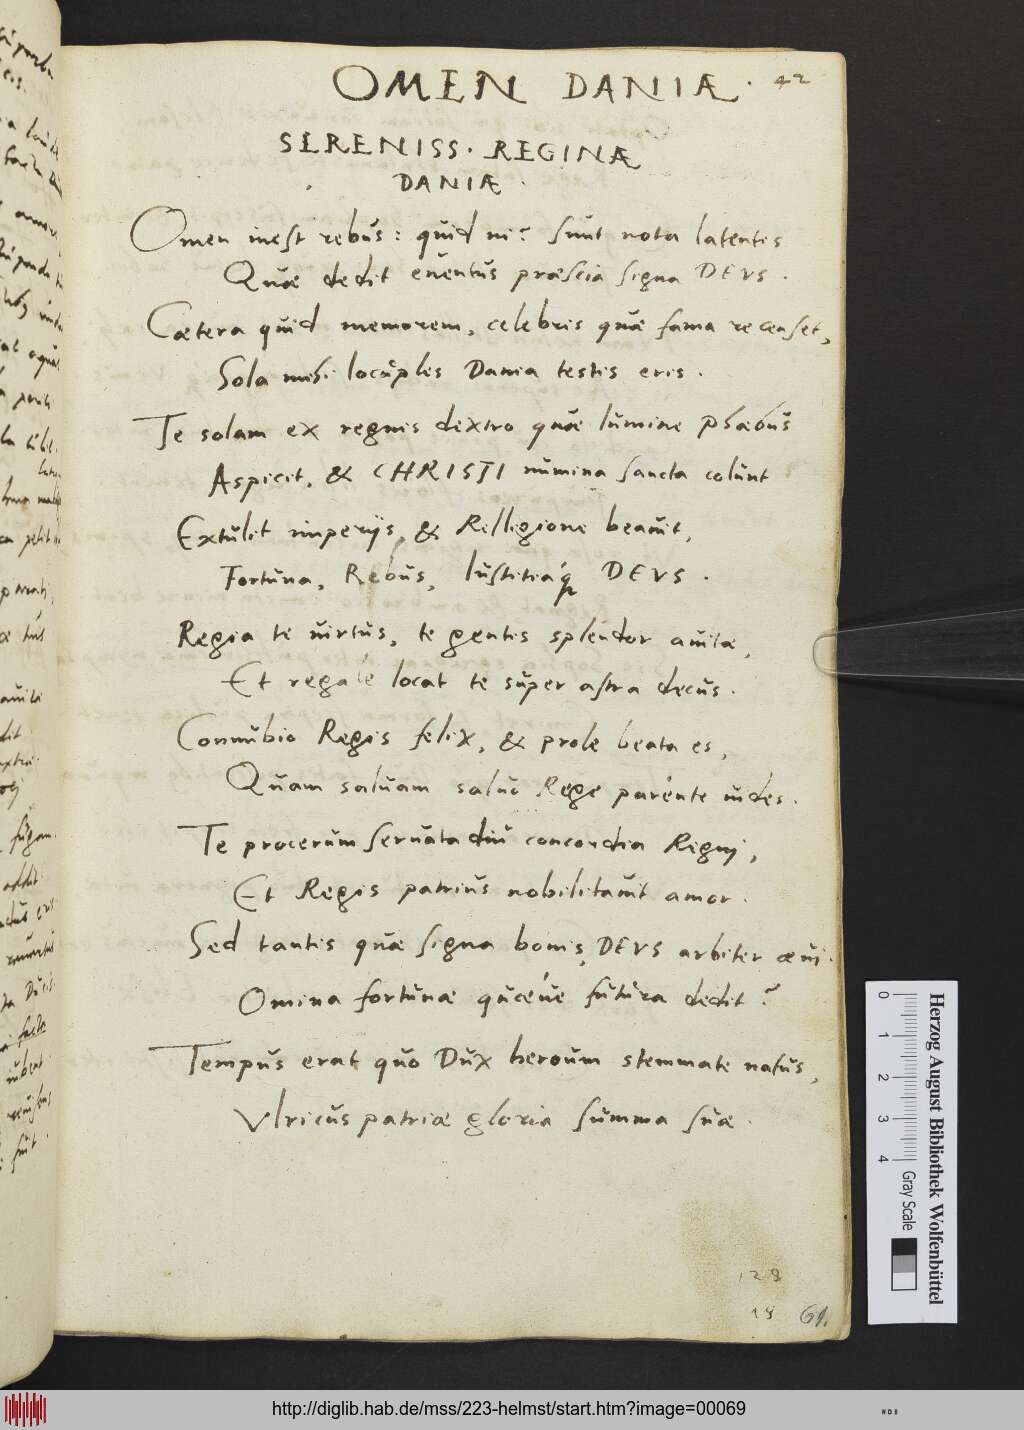 OMEN DANIÆ. 42
SERENISS. REGINÆ
DANIÆ.
Omen inest rebus: quid ni? sunt nota latentis
Quæ dedit euentus præscia signa DEVS.
Cætera quid memorem, celebris quæ fama recenset,
Sola mihi locuples Dania testis eris.
Te solam ex regnis dextro quæ lumine Phæbus
Aspicit, & CHRISTI numina sancta colunt
Extulit imperijs, & Relligione beauit,
Fortuna, Rebus, Iustitiaq́ DEVS.
Regia te uirtus, te gentis splendor auitæ,
Et regale locat te super astra decus.
Connubio Regis felix, & prole beata es,
Quam saluam saluo Rege parente uides.
Te procerum seruata diu concordia Regni,
Et Regis patrius nobilitauit amor.
Sed tantis quæ signa bonis, DEVS arbiter æui.
Omina fortunæ quæue futura dedit?
Tempus erat quo Dux heroum stemmate natus,
Vlricus patriæ gloria summa suæ.
128
18 61.
0 1 2 3 4
Gray Scale
Herzog August Bibliothek Wolfenbüttel
http://diglib.hab.de/mss/223-helmst/start.htm?image=00069
WDB